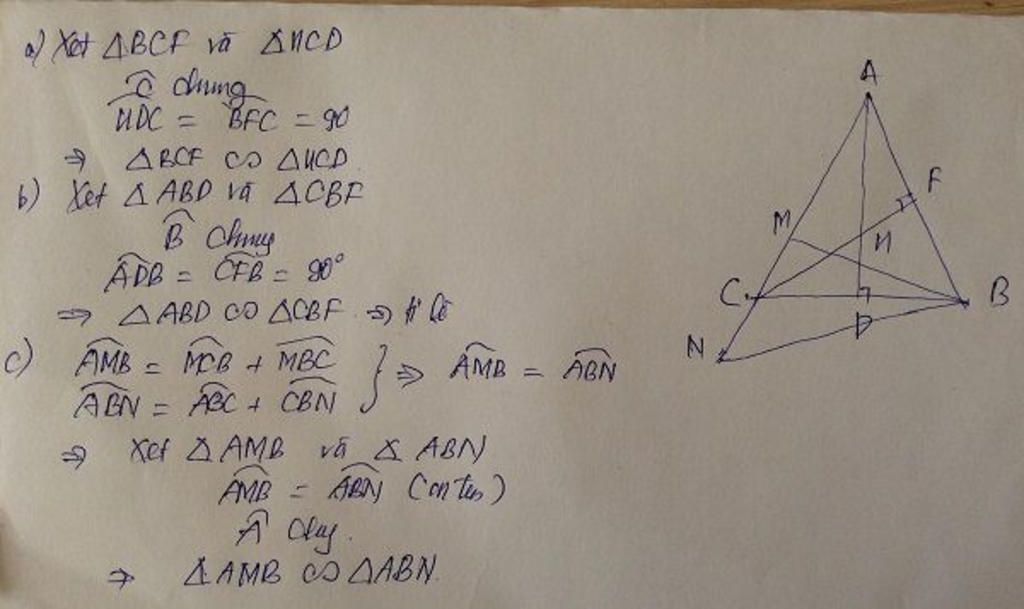 a) Xét ΔBCF và ΔHCD
Ĉ chung
HDC = BFC = 90
⇒ ΔBCF ∽ ΔHCD.
b) Xét ΔABD và ΔCBF
B̂ chung
ADB = CFB = 90°
⇒ ΔABD ∽ ΔCBF ⇒ tỉ lệ
c) AMB = MCB + MBC
ABN = ABC + CBN
} ⇒ AMB = ABN
⇒ Xét ΔAMB và Δ ABN
AMB = ABN (cm trên)
Â chung.
⇒ ΔAMB ∽ ΔABN.
A
F
M
H
C
B
D
N